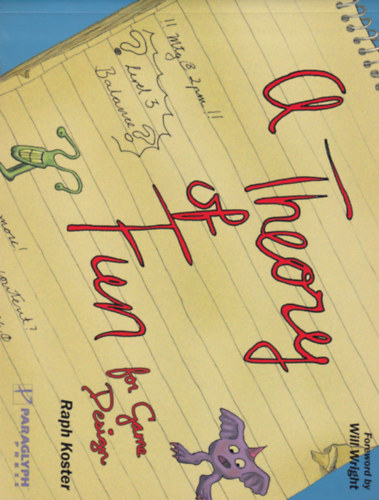 !! Mtg @ 2pm !!
? Level 3
Balance?
a Theory
of
Fun
for Game
Design
more!
content?
Raph Koster
PARAGLYPH
PRESS
Foreword by
Will Wright